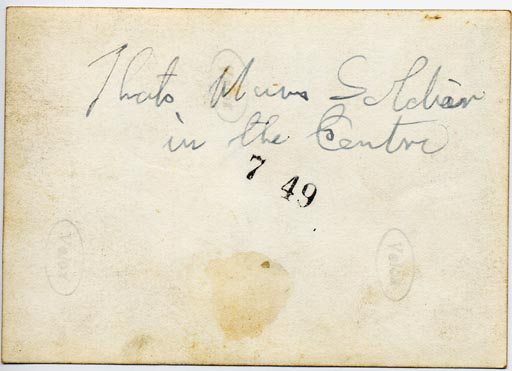 Thats Mums Soldier
in the Centre
7 49
Velox
Velox